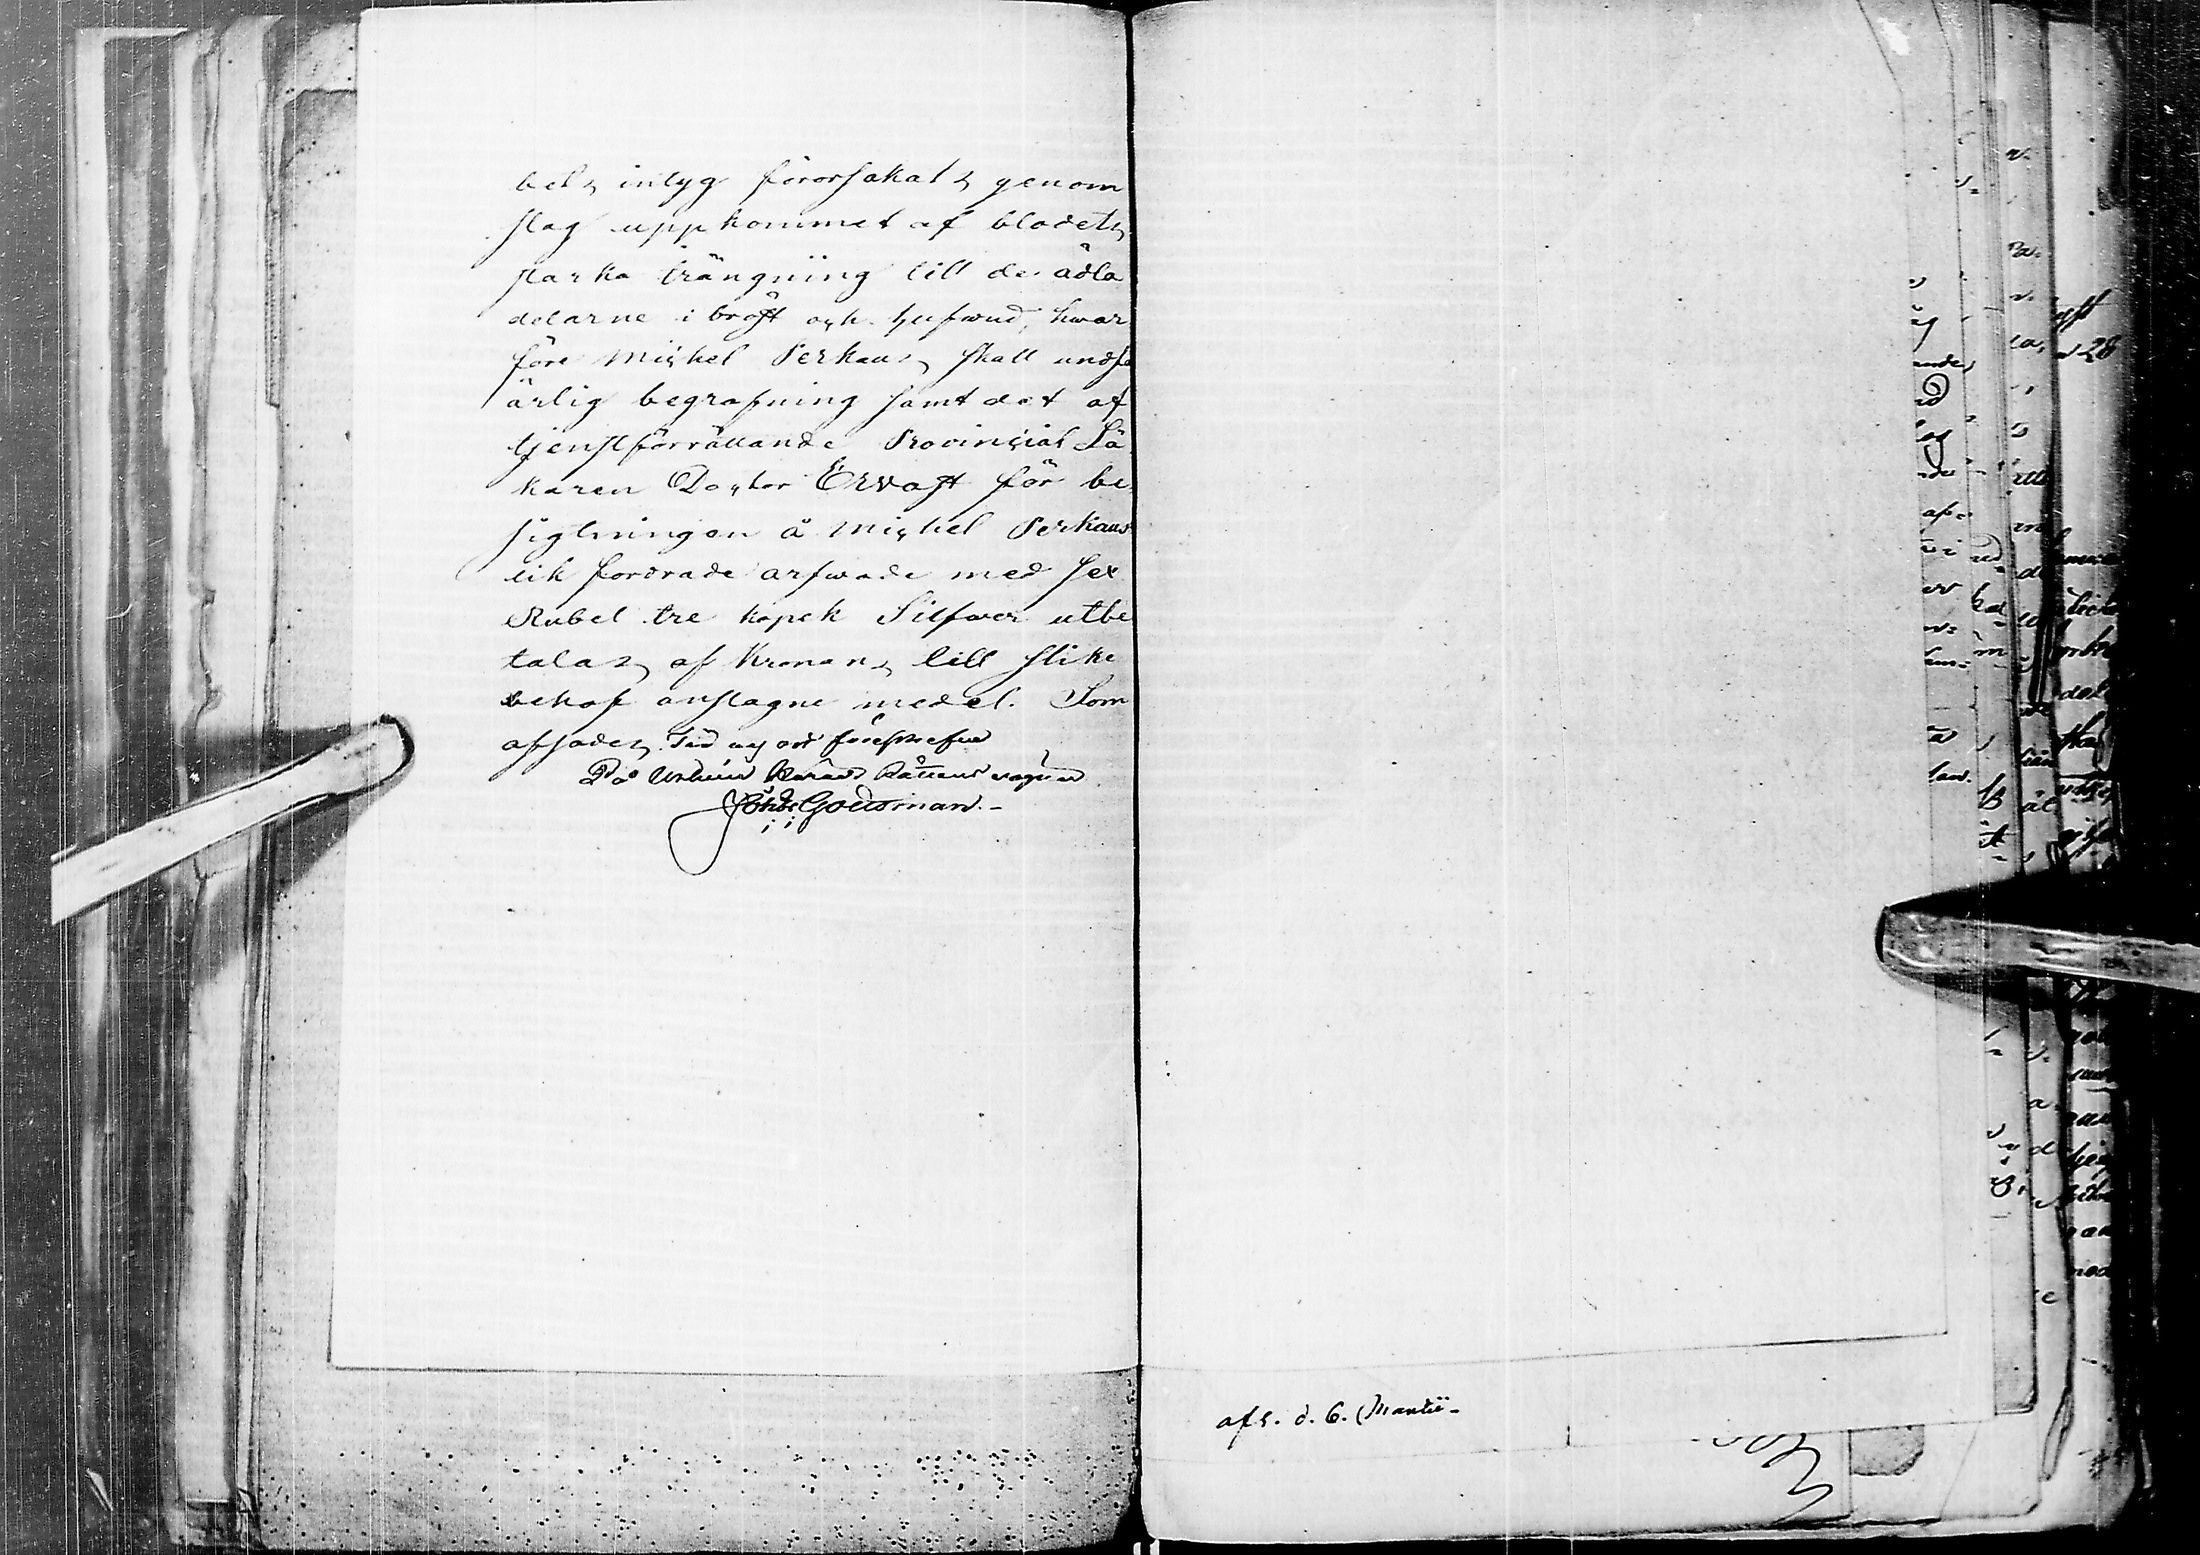 bets intyg förorsakats genom
slag uppkommet af blodets
starka trängning till de ädla
delarne i bröst och hufwud, hwar
före Michel Perkaus skall undfå
ärlig begrafning samt det af
tjenstförrättande Provincial Lä
karen Doctor Ervast för be
sigtningen å Michel Perkaus
lik fordrade arfwode med sex
Rubel tre kopek Silfwer utbe
talas af Kronans till slike
behof anslagne medel. Som
afsades. Tid och ort föreskrefne
På Härads Rättens wägnar
Goldsman.-
afs. d. 6. Martii-